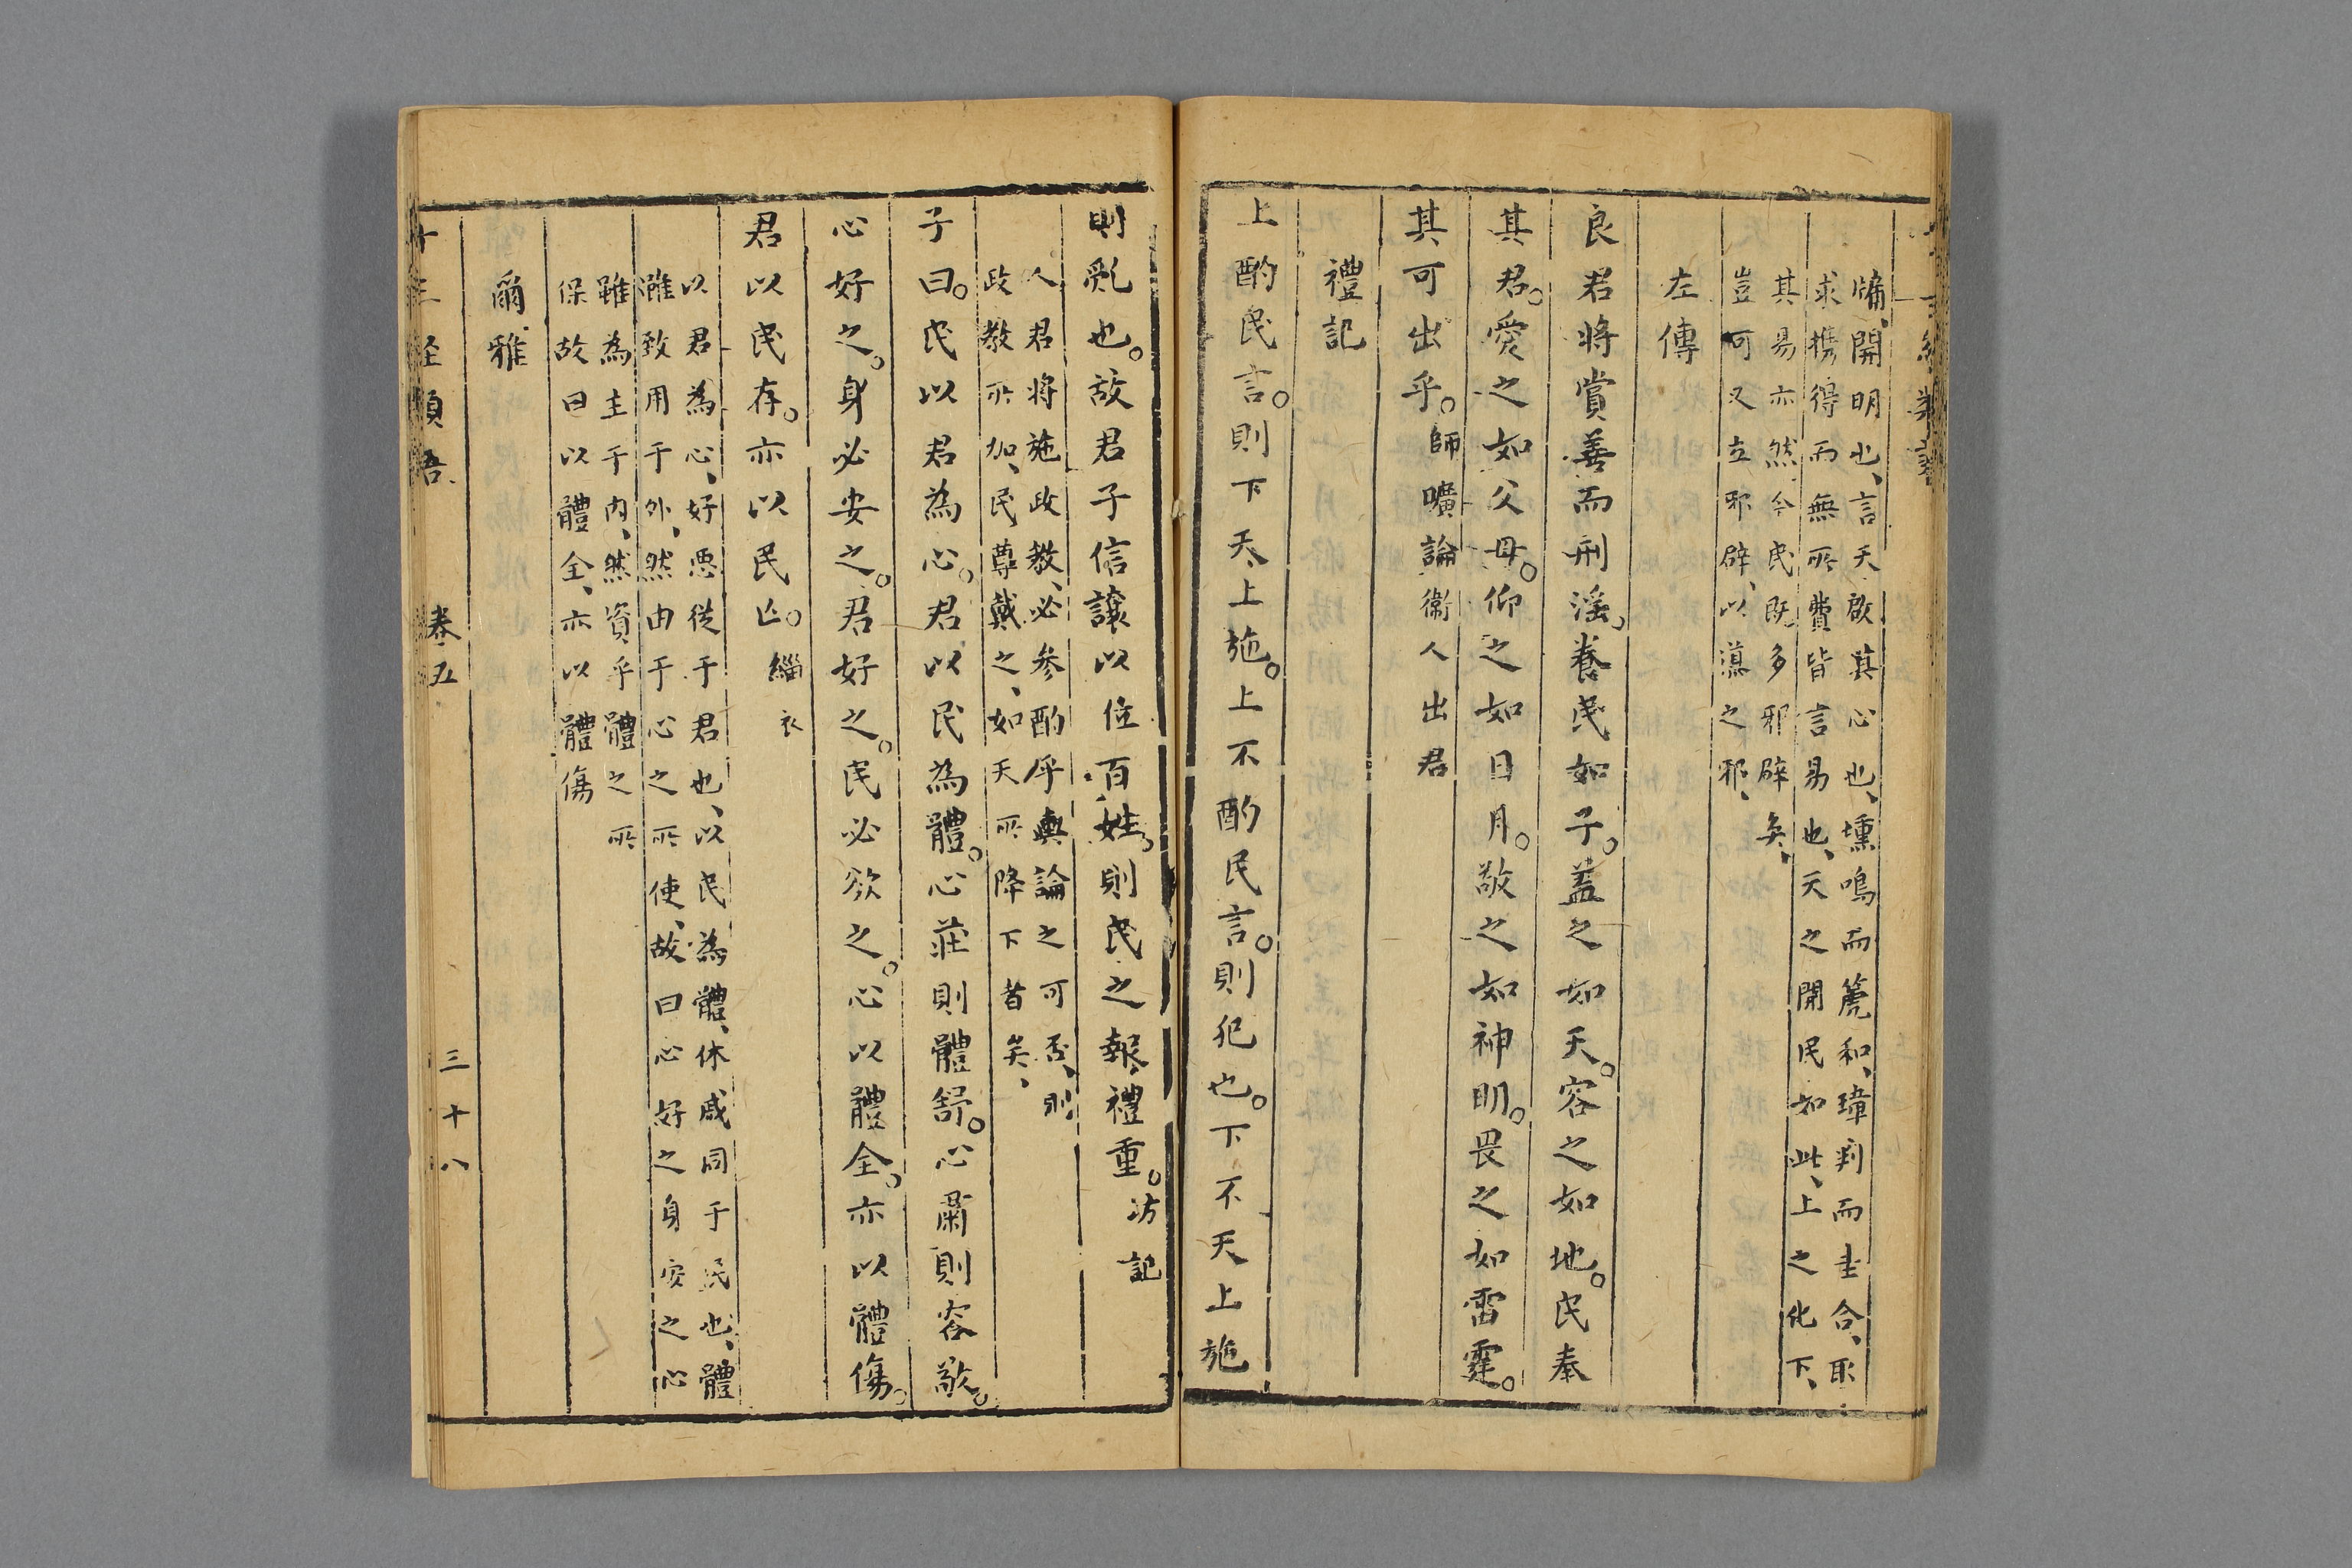 牗、開明也、言天啟其心也、壎鳴而篪和、璋判而圭合、取
求攜得而無所費皆言易也、天之開民如此、上之化下、
其易亦然今民既多邪辟矣、
豈可又立邪辟、以道之耶、
左傳
良君將賞善而刑淫。養民如子。葢之如天。容之如地。民奉
其君。愛之如父母。仰之如日月。敬之如神明。畏之如雷霆。
其可出乎。師曠論衛人出君
禮記
上酌民言。則下天上施。上不酌民言。則犯也。下不天上施
則亂也。故君子信讓以涖百姓。則民之報禮重。坊記
人君將施政教、必参酌乎輿論之可否、則
政教所加、民尊戴之、如天所降下者矣、
子曰。民以君為心。君以民為體。心莊則體舒。心肅則容敬。
心好之。身必安之。君好之。民必欲之。心以體全。亦以體傷。
君以民存。亦以民亡。緇衣
以君為心、好惡從于君也、以民為體、休戚同于民也、體
雖致用于外、然由于心之所使、故曰心好之身安之心
雖為主于内、然資乎體之所
保故曰以體全、亦以體傷
爾雅
十三經類語 卷五 三十八